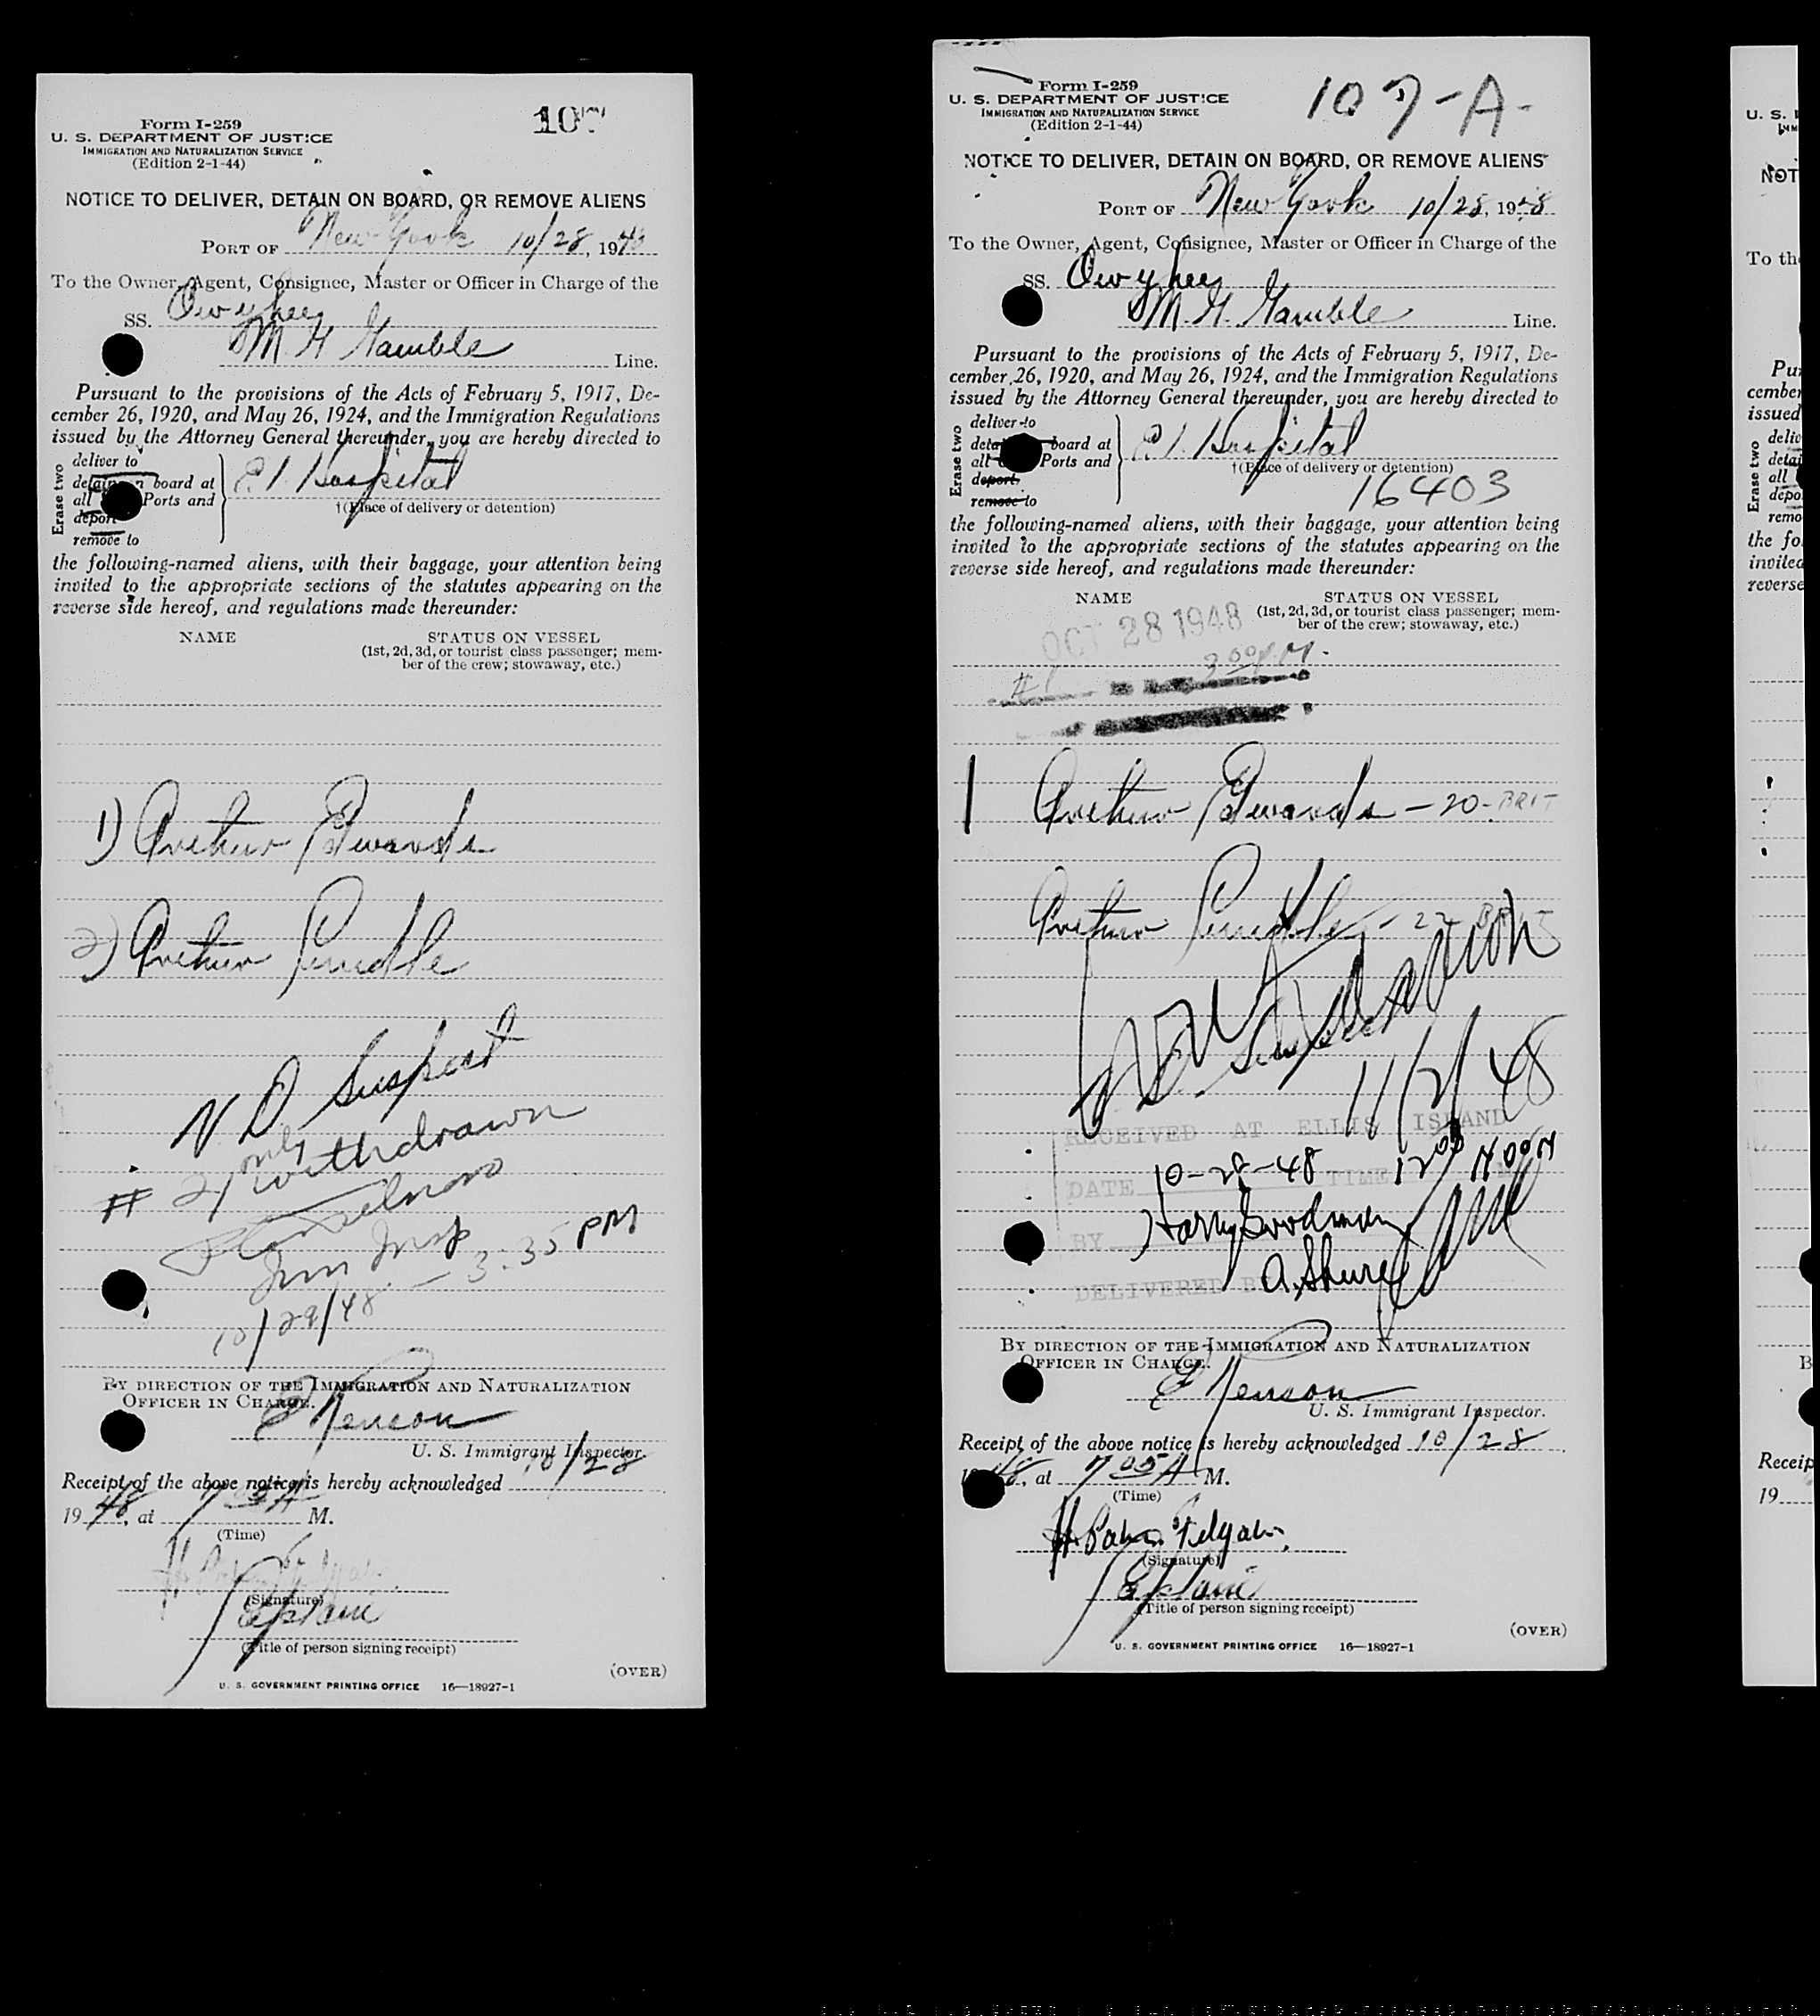 107
Form I-259
U. S. DEPARTMENT OF JUSTICE
IMMIGRATION AND NATURALIZATION SERVICE
(Edition 2-1-44)
NOTICE TO DELIVER, DETAIN ON BOARD, OR REMOVE ALIENS
PORT OF New York 10/28, 1948
To the Owner, Agent, Consignee, Master or Officer in Charge of the
SS. Owyhee
M. H. Gamble Line.
Pursuant to the provisions of the Acts of February 5, 1917, De-
cember 26, 1920, and May 26, 1924, and the Immigration Regulations
issued by the Attorney General thereunder, you are hereby directed to
Erase two
deliver to
detain on board at
all Ports and
deport
remove to
E. I. Hospital
†(Place of delivery or detention)
the following-named aliens, with their baggage, your attention being
invited to the appropriate sections of the statutes appearing on the
reverse side hereof, and regulations made thereunder:
NAME STATUS ON VESSEL
(1st, 2d, 3d, or tourist class passenger; mem-
ber of the crew; stowaway, etc.)
1) Arthur Edwards
2) Arthur
V. D. Suspect
only
# 2) withdrawn
Imm Insp
3:35 PM
10/29/48
BY DIRECTION OF THE IMMIGRATION AND NATURALIZATION
OFFICER IN CHARGE.
E Renson
U. S. Immigrant Inspector.
Receipt of the above notice is hereby acknowledged 10/28
1948, at 7 05 A M.
(Time)
(Signature)
Captain
(Title of person signing receipt)
(OVER)
U. S. GOVERNMENT PRINTING OFFICE 16—18927-1
107-A-
Form I-259
U. S. DEPARTMENT OF JUSTICE
IMMIGRATION AND NATURALIZATION SERVICE
(Edition 2-1-44)
NOTICE TO DELIVER, DETAIN ON BOARD, OR REMOVE ALIENS
PORT OF New York 10/28, 1948
To the Owner, Agent, Consignee, Master or Officer in Charge of the
SS. Owyhee
M. H. Gamble Line.
Pursuant to the provisions of the Acts of February 5, 1917, De-
cember 26, 1920, and May 26, 1924, and the Immigration Regulations
issued by the Attorney General thereunder, you are hereby directed to
Erase two
deliver to
detain board at
all Ports and
deport
remove to
E. I. Hospital
†(Place of delivery or detention)
16403
the following-named aliens, with their baggage, your attention being
invited to the appropriate sections of the statutes appearing on the
reverse side hereof, and regulations made thereunder:
NAME STATUS ON VESSEL
(1st, 2d, 3d, or tourist class passenger; mem-
ber of the crew; stowaway, etc.)
OCT 28 1948
#1 3 00 P.M.
1 Arthur Edwards - 20 - BRIT
Arthur
11/2/48
RECEIVED AT ELLIS ISLAND
DATE 10-28-48 TIME 12 00 NOON
BY Harry Goodman
DELIVERED BY A. Shure
BY DIRECTION OF THE IMMIGRATION AND NATURALIZATION
OFFICER IN CHARGE.
E Renson
U. S. Immigrant Inspector.
Receipt of the above notice is hereby acknowledged 10/28
1948, at 7 05 A M.
(Time)
(Signature)
Captain
(Title of person signing receipt)
(OVER)
U. S. GOVERNMENT PRINTING OFFICE 16—18927-1
U. S.
NOT
To th
cember
issued
Erase two
all
the fo
reverse
Receip
19